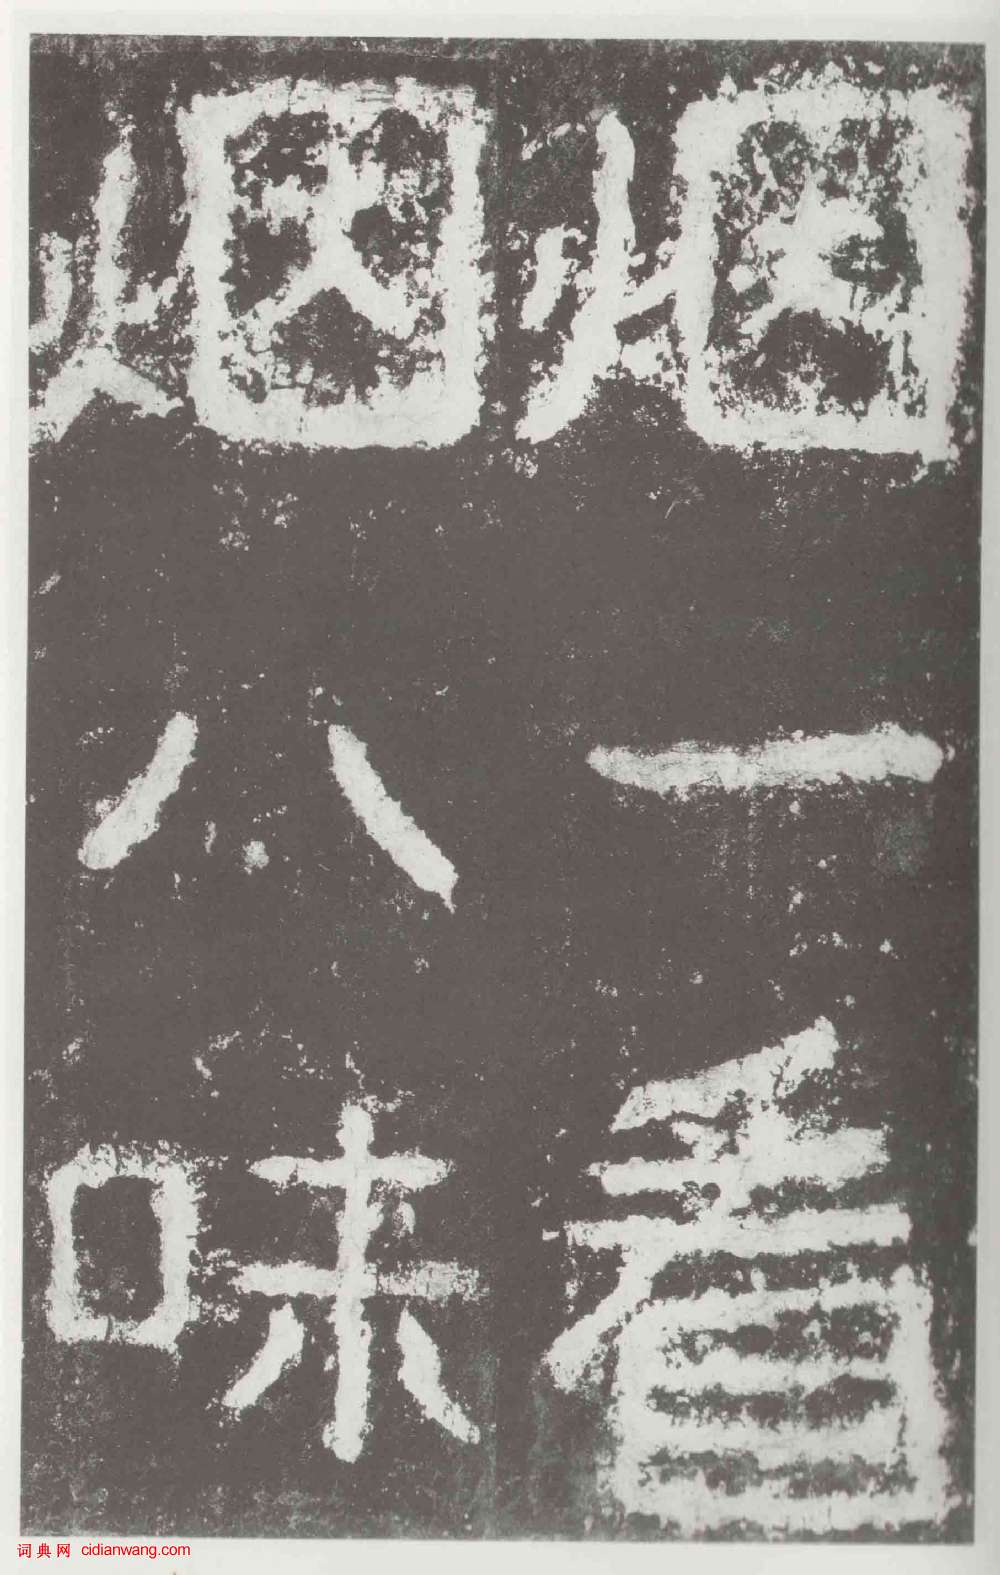 烟一看
烟八味
词典网 cidianwang.com